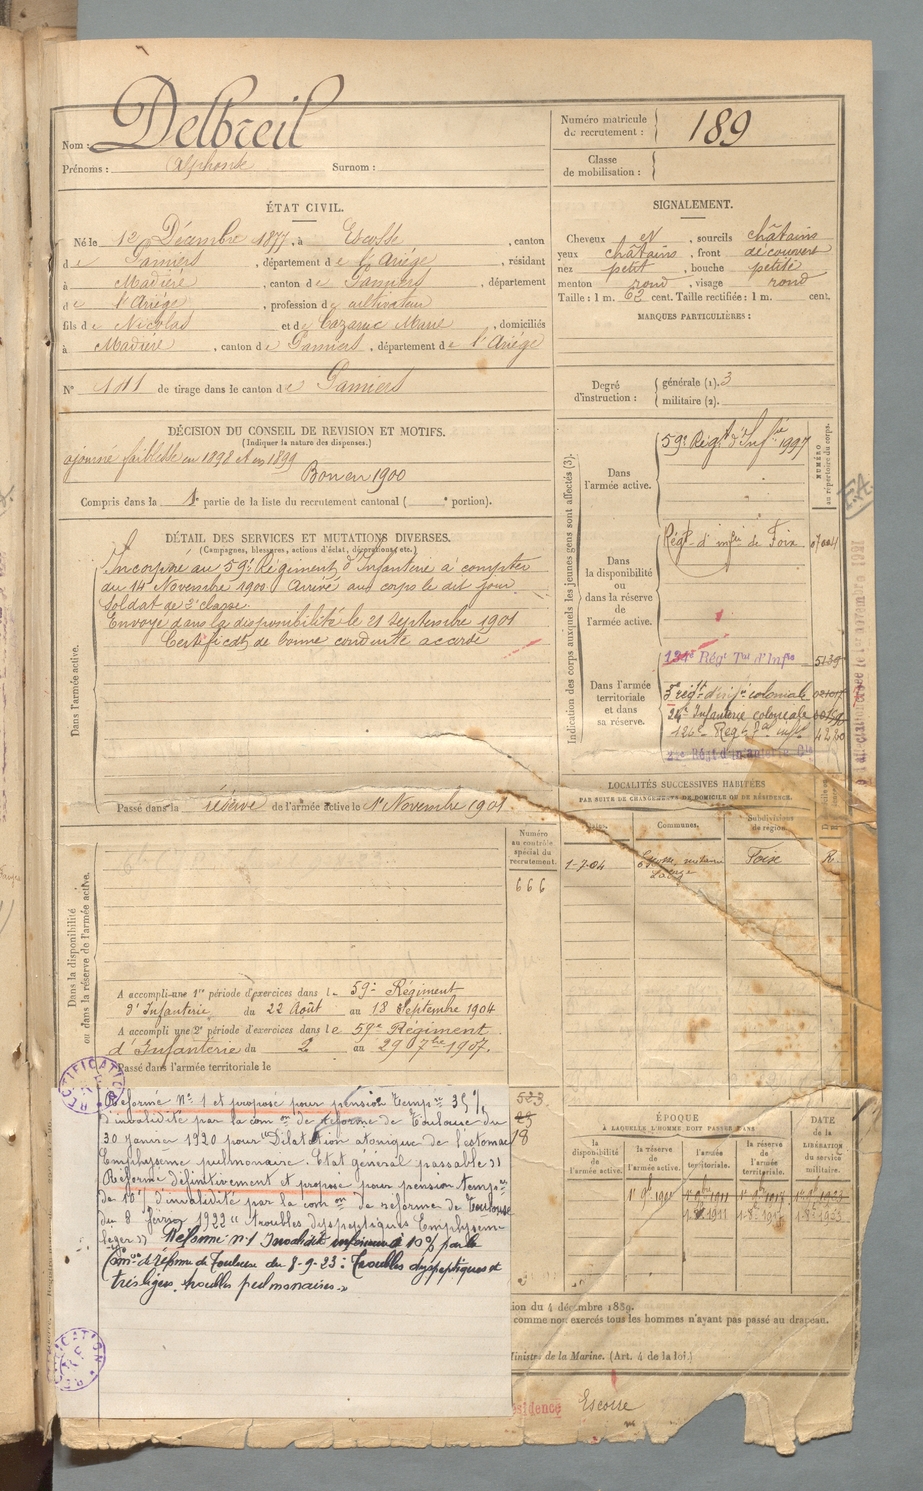 Nom : Delbreil
Prénoms : Alphonse Surnom :
Numéro matricule du recrutement : 189
Classe de mobilisation :
ÉTAT CIVIL.
Né le 12 Décembre 1877, à Escosse, canton
de Pamiers, département de l'Ariége, résidant
à Madière, canton de Pamiers, département
de l'Ariége, profession de cultivateur
fils de Nicolas et de Cazarre Marie, domiciliés
à Madière, canton de Pamiers, département de l'Ariége
N° 101 de tirage dans le canton de Pamiers
SIGNALEMENT.
Cheveux , sourcils châtains
yeux châtains, front découvert
nez petit, bouche petite
menton rond, visage rond
Taille : 1 m. 62 cent. Taille rectifiée : 1 m. cent.
MARQUES PARTICULIÈRES :
Degré d'instruction : générale (1). 3
militaire (2).
DÉCISION DU CONSEIL DE REVISION ET MOTIFS.
(Indiquer la nature des dispenses.)
ajourné faiblesse en 1898 et en 1899
Bon en 1900
Compris dans la 1e partie de la liste du recrutement cantonal ( e portion).
DÉTAIL DES SERVICES ET MUTATIONS DIVERSES.
(Campagnes, blessures, actions d'éclat, décorations, etc.)
Dans l'armée active.
Incorporé au 59e Régiment d'Infanterie à compter
du 14 Novembre 1900 Arrivé au corps le dit jour
Soldat de 2e classe.
Envoyé dans la disponibilité le 21 Septembre 1901
Certificat de bonne conduite accordé
Passé dans la réserve de l'armée active le 1er Novembre 1901
Indication des corps auxquels les jeunes gens sont affectés (3).
NUMÉRO au répertoire du corps.
Dans l'armée active.
59e Régt d'Inf.ie 1997
Dans la disponibilité ou dans la réserve de l'armée active.
Régt d'infie de Foix
Dans l'armée territoriale et dans sa réserve.
134e Régt Tal d'Infie 5139
5e régt d'infie coloniale
24e Infanterie coloniale
22e Régt d'Infanterie Cle
F.A.
LOCALITÉS SUCCESSIVES HABITÉES
PAR SUITE DE CHANGEMENTS DE DOMICILE OU DE RÉSIDENCE.
Dates. Communes. Subdivisions de région.
1-7-04 Foix R.
Numéro au contrôle spécial du recrutement.
666
Dans la disponibilité ou dans la réserve de l'armée active.
A accompli une 1re période d'exercices dans le 59e Régiment
d'Infanterie du 22 Août au 18 Septembre 1904
A accompli une 2e période d'exercices dans le 59e Régiment
d'Infanterie du 2 au 29 7bre 1907.
Passé dans l'armée territoriale le
RECTIFICATION
Réformé N° 1 et proposé pour pension tempre 35%
d'invalidité par la comon de réforme de Toulouse du
30 janvier 1920 pour "Dilatation atonique de l'estomac
Emphysème pulmonaire. Etat général passable"
Réformé définitivement et proposé pour pension tempre
de 10% d'invalidité par la comon de réforme de Toulouse
du 8 février 1922 "troubles dyspeptiques Emphysème
léger" Réformé n° 1 Invalidité inférieure à 10% par la
Comon de réforme de Toulouse du 8-9-23 : Troubles dyspeptiques et
très légers troubles pulmonaires."
523
18
ÉPOQUE
À LAQUELLE L'HOMME DOIT PASSER DANS
la disponibilité de l'armée active. la réserve de l'armée active. l'armée territoriale. la réserve de l'armée territoriale. DATE de la LIBÉRATION du service militaire.
tion du 4 décembre 1889.
comme non exercés tous les hommes n'ayant pas passé au drapeau.
Ministre de la Marine. (Art. 4 de la loi.)
ésidence Escosse